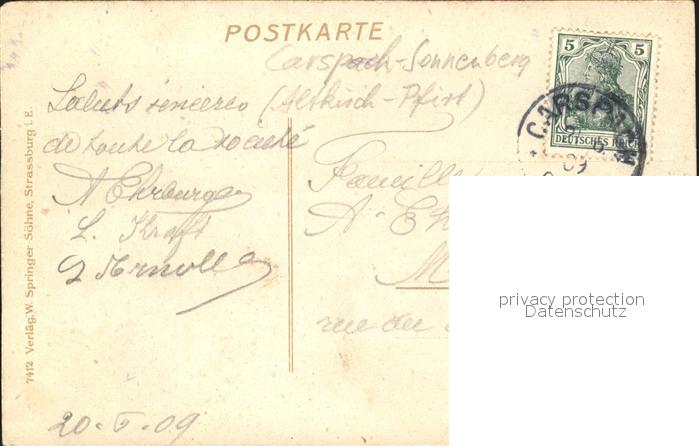 POSTKARTE
Carspach-Sonnenberg
(Altkirch-Pfirt)
5 5
DEUTSCHES REICH
CARSPACH
09
Saluts sinceres
de toute la société
A Ehrburger
L. Kraft
Famille
A. Eh
M
rue du
20-V-09
7412 Verlag W. Springer Söhne, Strassburg i. E.
privacy protection
Datenschutz